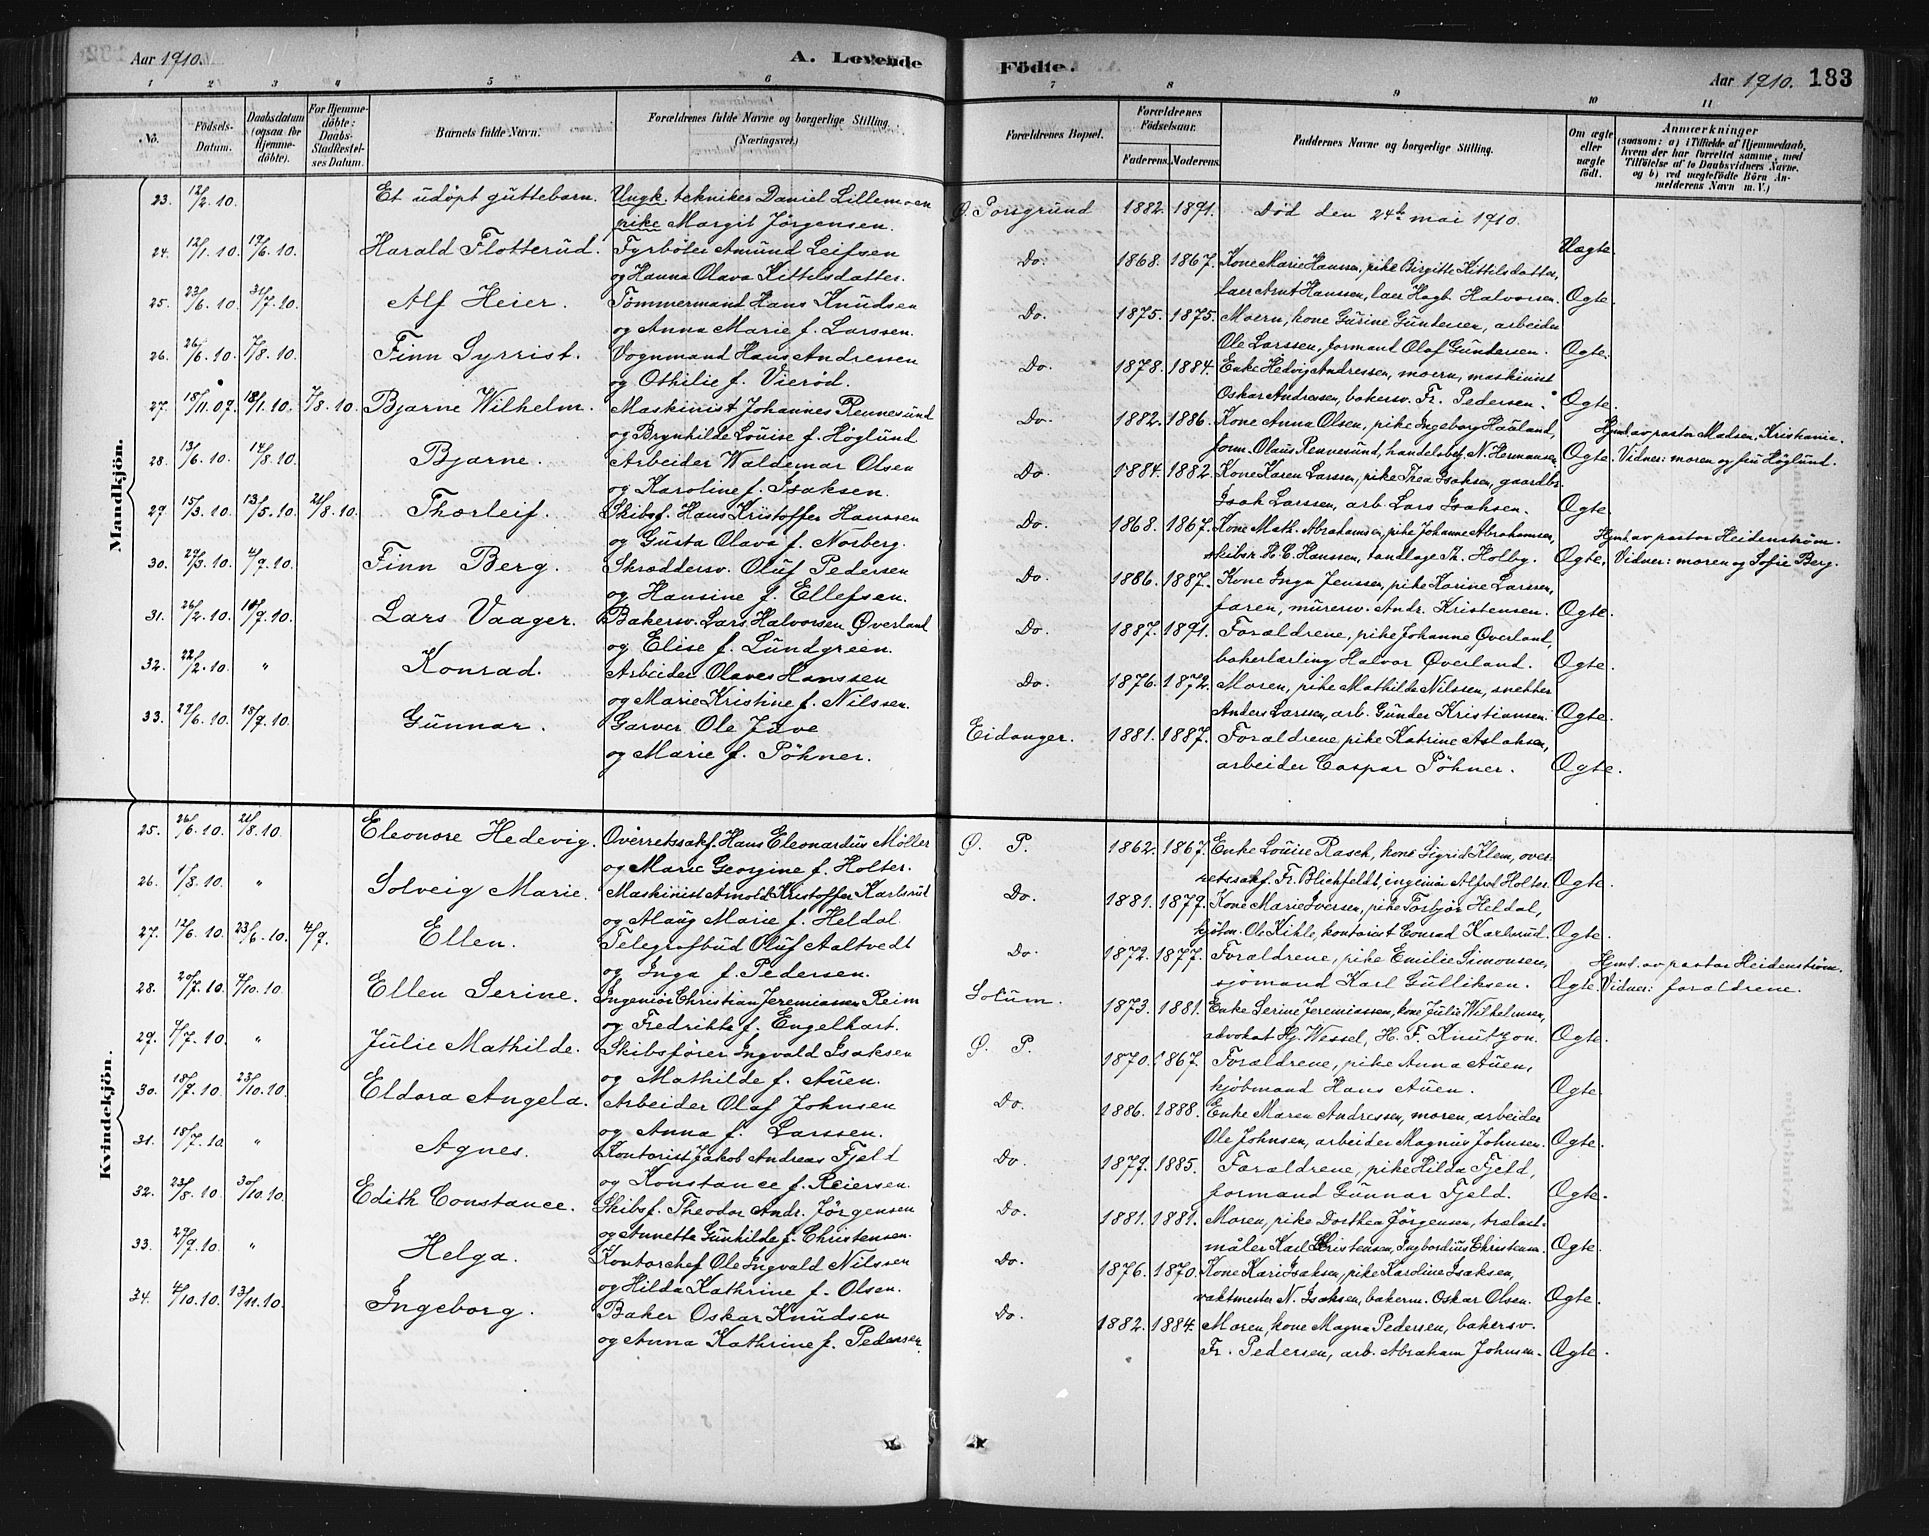 Aar 1910.
A. Levende
Födte.
Aar 1910. 183
1 2 3 4 5 6 7 8 9 10 11
No. Födsels-Datum. Daabsdatum (ogsaa for Hjemme-döbte). For Hjemme-döbte: Daabs-Stadfæstel-ses Datum. Barnets fulde Navn. Forældrenes fulde Navne og borgerlige Stilling. (Næringsvei.) Forældrenes Bopæl. Forældrenes Födselsaar. Faderens. Moderens. Faddernes Navne og borgerlige Stilling. Om ægte eller uægte födt. Anmærkninger (saasom: a) i Tilfælde af Hjemmedaab, hvem der har forrettet samme, med Tilföielse af to Daabsvidners Navne, og b) ved uægtefödte Börn An-melderens Navn m. V.)
Mandkjön.
23. 12/2.10. Et udöpt guttebarn. Ungk. tekniker Daniel Lillemoen Ø. Porsgrund 1882. 1891. Död den 24de mai 1910.
pike Margit Jörgensen. Uægte
24. 12/1.10. 19/6.10. Harald Flotterud. Fyrböter Amund Leifsen Do. 1868. 1867. Kone Marie Hanssen, pike Birgitte Kittelsdatter,
og Hanna Olava Kittelsdatter. laer Arnt Hanssen, laer Hagb. Halvorsen. Ogte.
25. 23/6.10. 31/7.10. Alf Heier. Tömmermand Hans Knudsen Do. 1875. 1875. Moern, kone Gurine Gundersen, arbeider
og Anna Marie f. Larssen. Ole Larssen, formand Olaf Gundersen. Ogte.
26. 26/6.10. 7/8.10. Finn Syrrist. Vognmand Hans Andressen Do. 1878. 1884. Enke Hedvig Andressen, moern, maskinist
og Othilie f. Vieröd. Oskar Andressen, bakersv. Fr. Pedersen. Ogte.
27. 18/11.07. 18/1.10. 7/8.10. Bjarne Wilhelm. Maskinist Johannes Rennesund Do. 1882. 1886. Kone Anna Olsen, pike Ingeborg Haaland, Hjmd. av pastor Madsen, Kristiania.
og Brynhilde Louise f. Höglund Olaus Rennesund, handelsbef. N. Hermansen Ogte. Vidner: moren og fru Höglund.
28. 13/6.10. 14/8.10. Bjarne. Arbeider Waldemar Olsen Do. 1884. 1882. Kone Karen Larssen, pike Thea Isaksen, gaardbr.
og Karoline f. Isaksen. Isak Larssen, arb. Lars Isaksen. Ogte.
29. 15/3.10. 13/5.10. 21/8.10. Thorleif. Skibsf. Hans Kristoffer Hanssen Do. 1868. 1867. Kone Math. Abrahamsen, pike Johanne Abrahamsen, Hjmd. av pastor Heidenström.
og Gusta Olava f. Norberg. skibsr. H. C. Hanssen, tandlæge Th. Holby. Ogte. Vidner: moren og Sofie Berg.
30. 29/3.10. 4/9.10. Finn Berg. Skræddersv. Oluf Pedersen Do. 1886. 1887. Kone Inga Jenssen, pike Karine Larssen,
og Hansine f. Ellefsen. faren, murersv. Andr. Kristensen. Ogte.
31. 26/2.10. 18/9.10. Lars Vaager. Bakersv. Lars Halvorsen Øverland Do. 1887. 1891. Forældrene, pike Johanne Øverland,
og Elise f. Lundgreen. bakerlærling Halvor Øverland. Ogte.
32. 22/2.10. " Konrad. Arbeider Olaves Hanssen Do. 1876. 1872. Moren, pike Mathilde Nilssen, snekker
og Marie Kristine f. Nilssen. Anders Larssen, arb. Gunder Kristiansen. Ogte.
33. 29/6.10. 18/9.10. Gunnar. Garver Ole Juve Eidanger. 1881. 1887. Forældrene, pike Katrine Aslaksen,
og Marie f. Pöhner. arbeider Caspar Pöhner. Ogte.
Kvindekjön.
25. 26/6.10. 21/8.10. Eleonore Hedevig. Overretssakf. Hans Eleonardus Möller Ø. P. 1862. 1867. Enke Louise Rasch, kone Sigrid Klem, over-
og Marie Georgine f. Holter. retssakf. Fr. Blichfeldt, ingeniör Alfred Holter. Ogte.
26. 1/8.10. " Solveig Marie. Maskinist Arnold Kristoffer Karlsrud Do. 1881. 1879. Kone Marie Iversen, pike Torbjör Heldal,
og Alaug Marie f. Heldal kjöbm. Ole Kihle, kontorist Conrad Karlsrud. Ogte.
27. 12/6.10. 23/6.10. 4/9. Ellen. Telegrafbud Oluf Aaltvedt Do. 1872. 1877. Forældrene, pike Emilie Simonsen, Hjmd. av pastor Heidenström.
og Inga f. Pedersen. sjömand Karl Gulliksen. Ogte. Vidner: forældrene.
28. 20/7.10. 9/10.10. Ellen Serine. Ingeniör Christian Jeremiassen Reim Solum. 1873. 1881. Enke Serine Jeremiassen, kone Julie Wilhelmsen,
og Fredrikke f. Engelhart. advokat Hj. Wessel, H. F. Knutzon. Ogte.
29. 9/7.10. " Julie Mathilde. Skibsförer Ingvald Isaksen Ø. P. 1870. 1867. Forældrene, pike Anna Auen,
og Mathilde f. Auen. kjöbmand Hans Auen. Ogte.
30. 18/9.10. 23/10.10. Eldora Angela. Arbeider Olaf Johnsen Do. 1886. 1888. Enke Maren Andressen, moren, arbeider
og Anna f. Larssen. Ole Johnsen, arbeider Magnus Johnsen. Ogte.
31. 18/7.10. " Agnes. Kontorist Jakob Andreas Fjeld Do. 1879. 1885. Forældrene, pike Hilda Fjeld,
og Konstance f. Reiersen. formand Gunnar Fjeld. Ogte.
32. 23/8.10. 30/10.10. Edith Constance. Skibsf. Theodor Andr. Jörgensen Do. 1881. 1881. Moren, pike Dorthea Jörgensen, trælast-
og Annette Gunhilde f. Christensen. måler Karl Christensen, Ingbordius Christensen. Ogte.
33. 29/9.10. " Helga. Kontorchef Ole Ingvald Nilssen Do. 1876. 1870. Kone Kari Isaksen, pike Karoline Isaksen,
og Hilda Kathrine f. Olsen. vaktmester N. Isaksen, bakerm. Oskar Olsen. Ogte.
34. 4/10.10. 13/11.10. Ingeborg. Baker Oskar Knudsen Do. 1882. 1884. Moren, kone Magna Pedersen, bakersv.
og Anna Kathrine f. Pedersen. Fr. Pedersen, arb. Abraham Johnsen. Ogte.